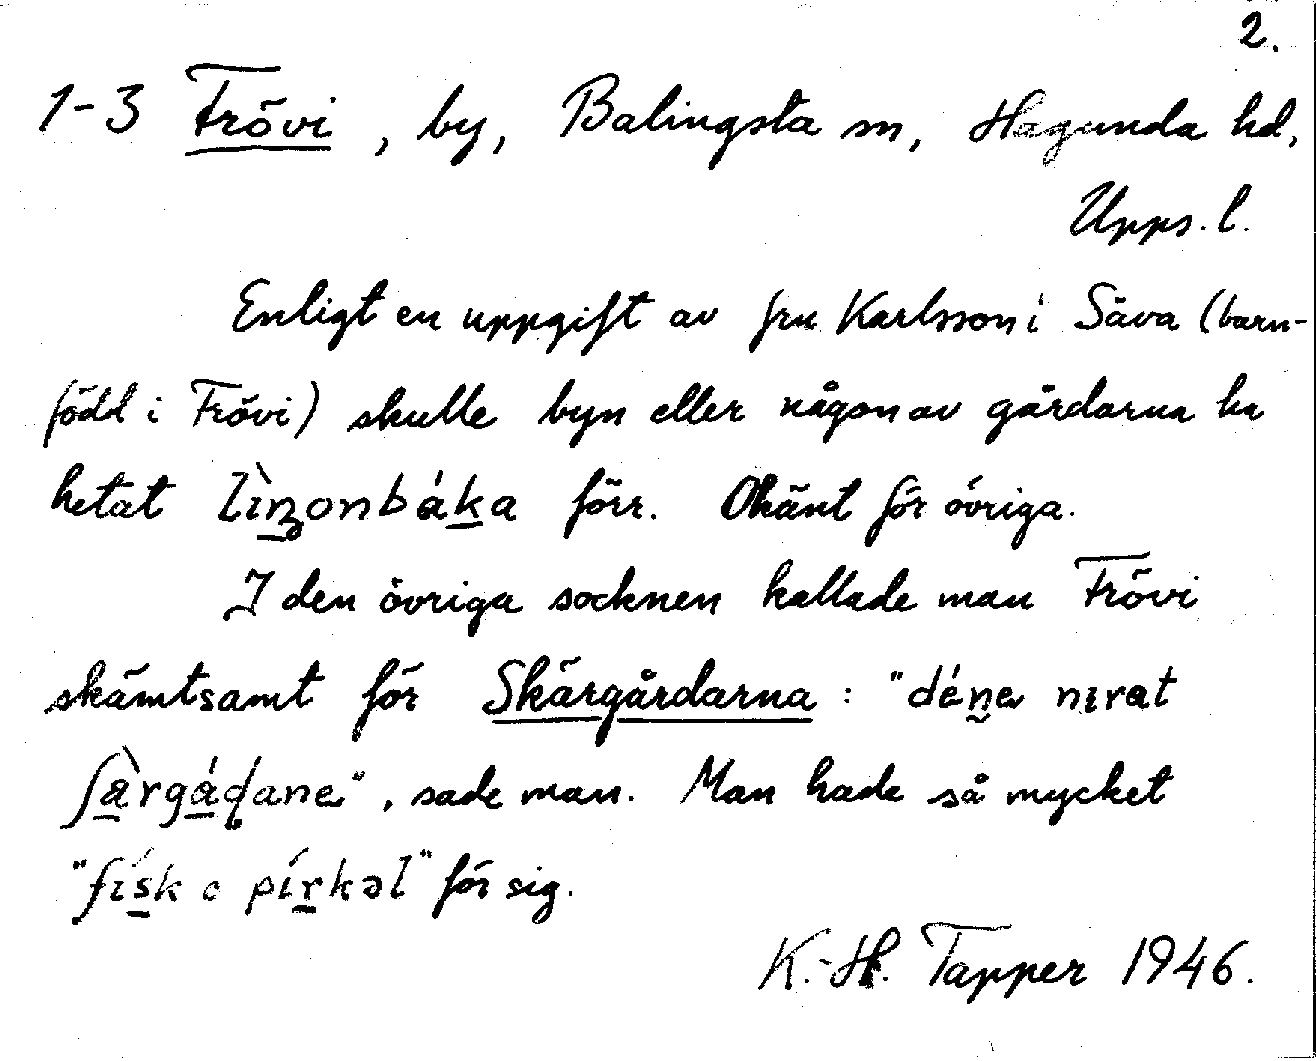 2.
1-3 Frövi, by, Balingsta sn, Hagunda hd,
Upps. l.
Enligt en uppgift av fru Karlsson i Säva (barn-
född i Frövi) skulle byn eller någon av gårdarna ha
hetat förr. Okänt för övriga.
I den övriga socknen kallade man Frövi
skämtsamt för Skärgårdarna: "
", sade man. Man hade så mycket
"físk o pírkəl" för sig.
K.-H. Tapper 1946.